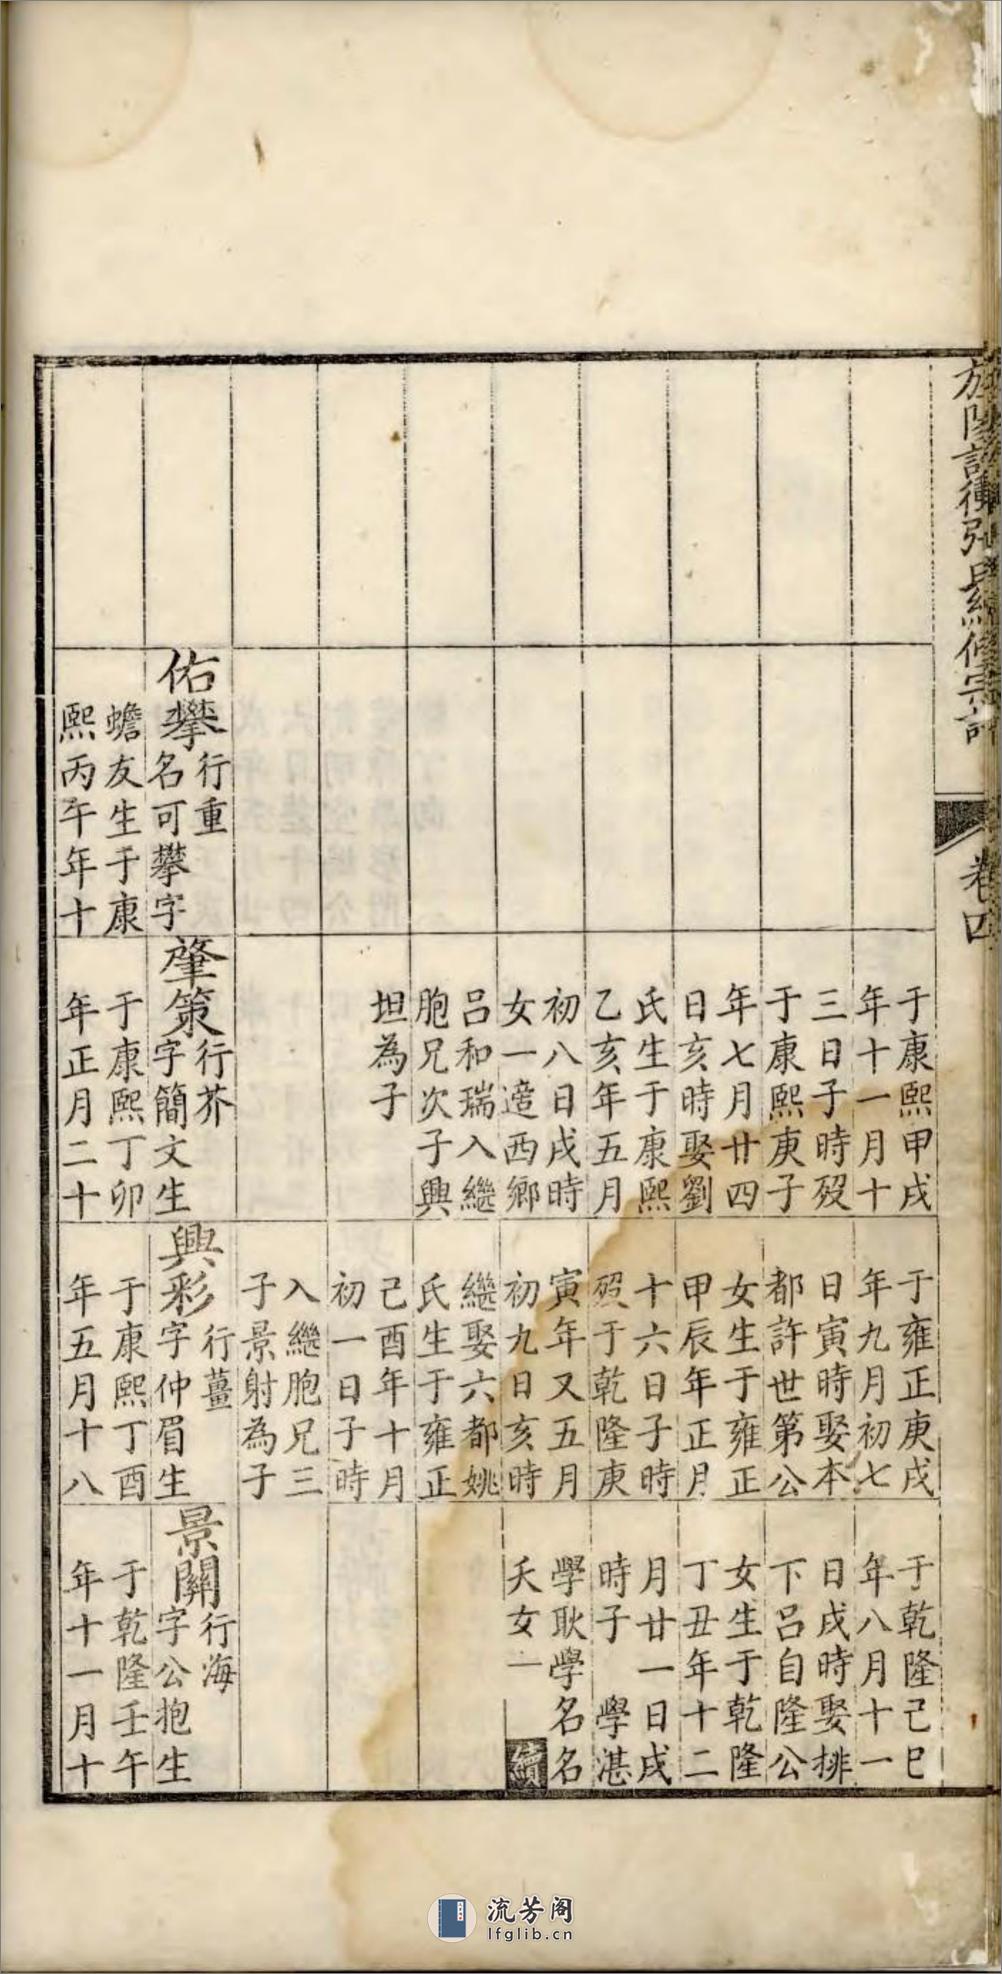 卷四
佑攀
行重
名可攀字
蟾友生于康
熙丙午年十
于康熙甲戌
年十一月十
三日子時殁
于康熙庚子
年七月廿四
日亥時娶劉
氏生于康熙
乙亥年五月
初八日戌時
女一適西鄉
呂和瑞入繼
胞兄次子興
坦為子
肇策
行芥
字簡文生
于康熙丁卯
年正月二十
于雍正庚戌
年九月初七
日寅時娶本
都許世第公
女生于雍正
甲辰年正月
十六日子時
殁于乾隆庚
寅年又五月
初九日亥時
繼娶六都姚
氏生于雍正
己酉年十月
初一日子時
入繼胞兄三
子景射為子
興彩
行薑
字仲眉生
于康熙丁酉
年五月十八
于乾隆己巳
年八月十一
日戌時娶排
下呂自隆公
女生于乾隆
丁丑年十二
月廿一日戌
時子 學湛
學耿學名名
夭女一 續
景關
行海
字公抱生
于乾隆壬午
年十一月十
流芳阁
lfglib.cn